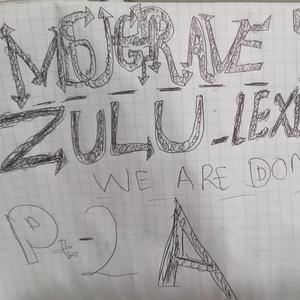 MUSGRAVE
ZULU_LEX
WE ARE DON
Pt-2 A